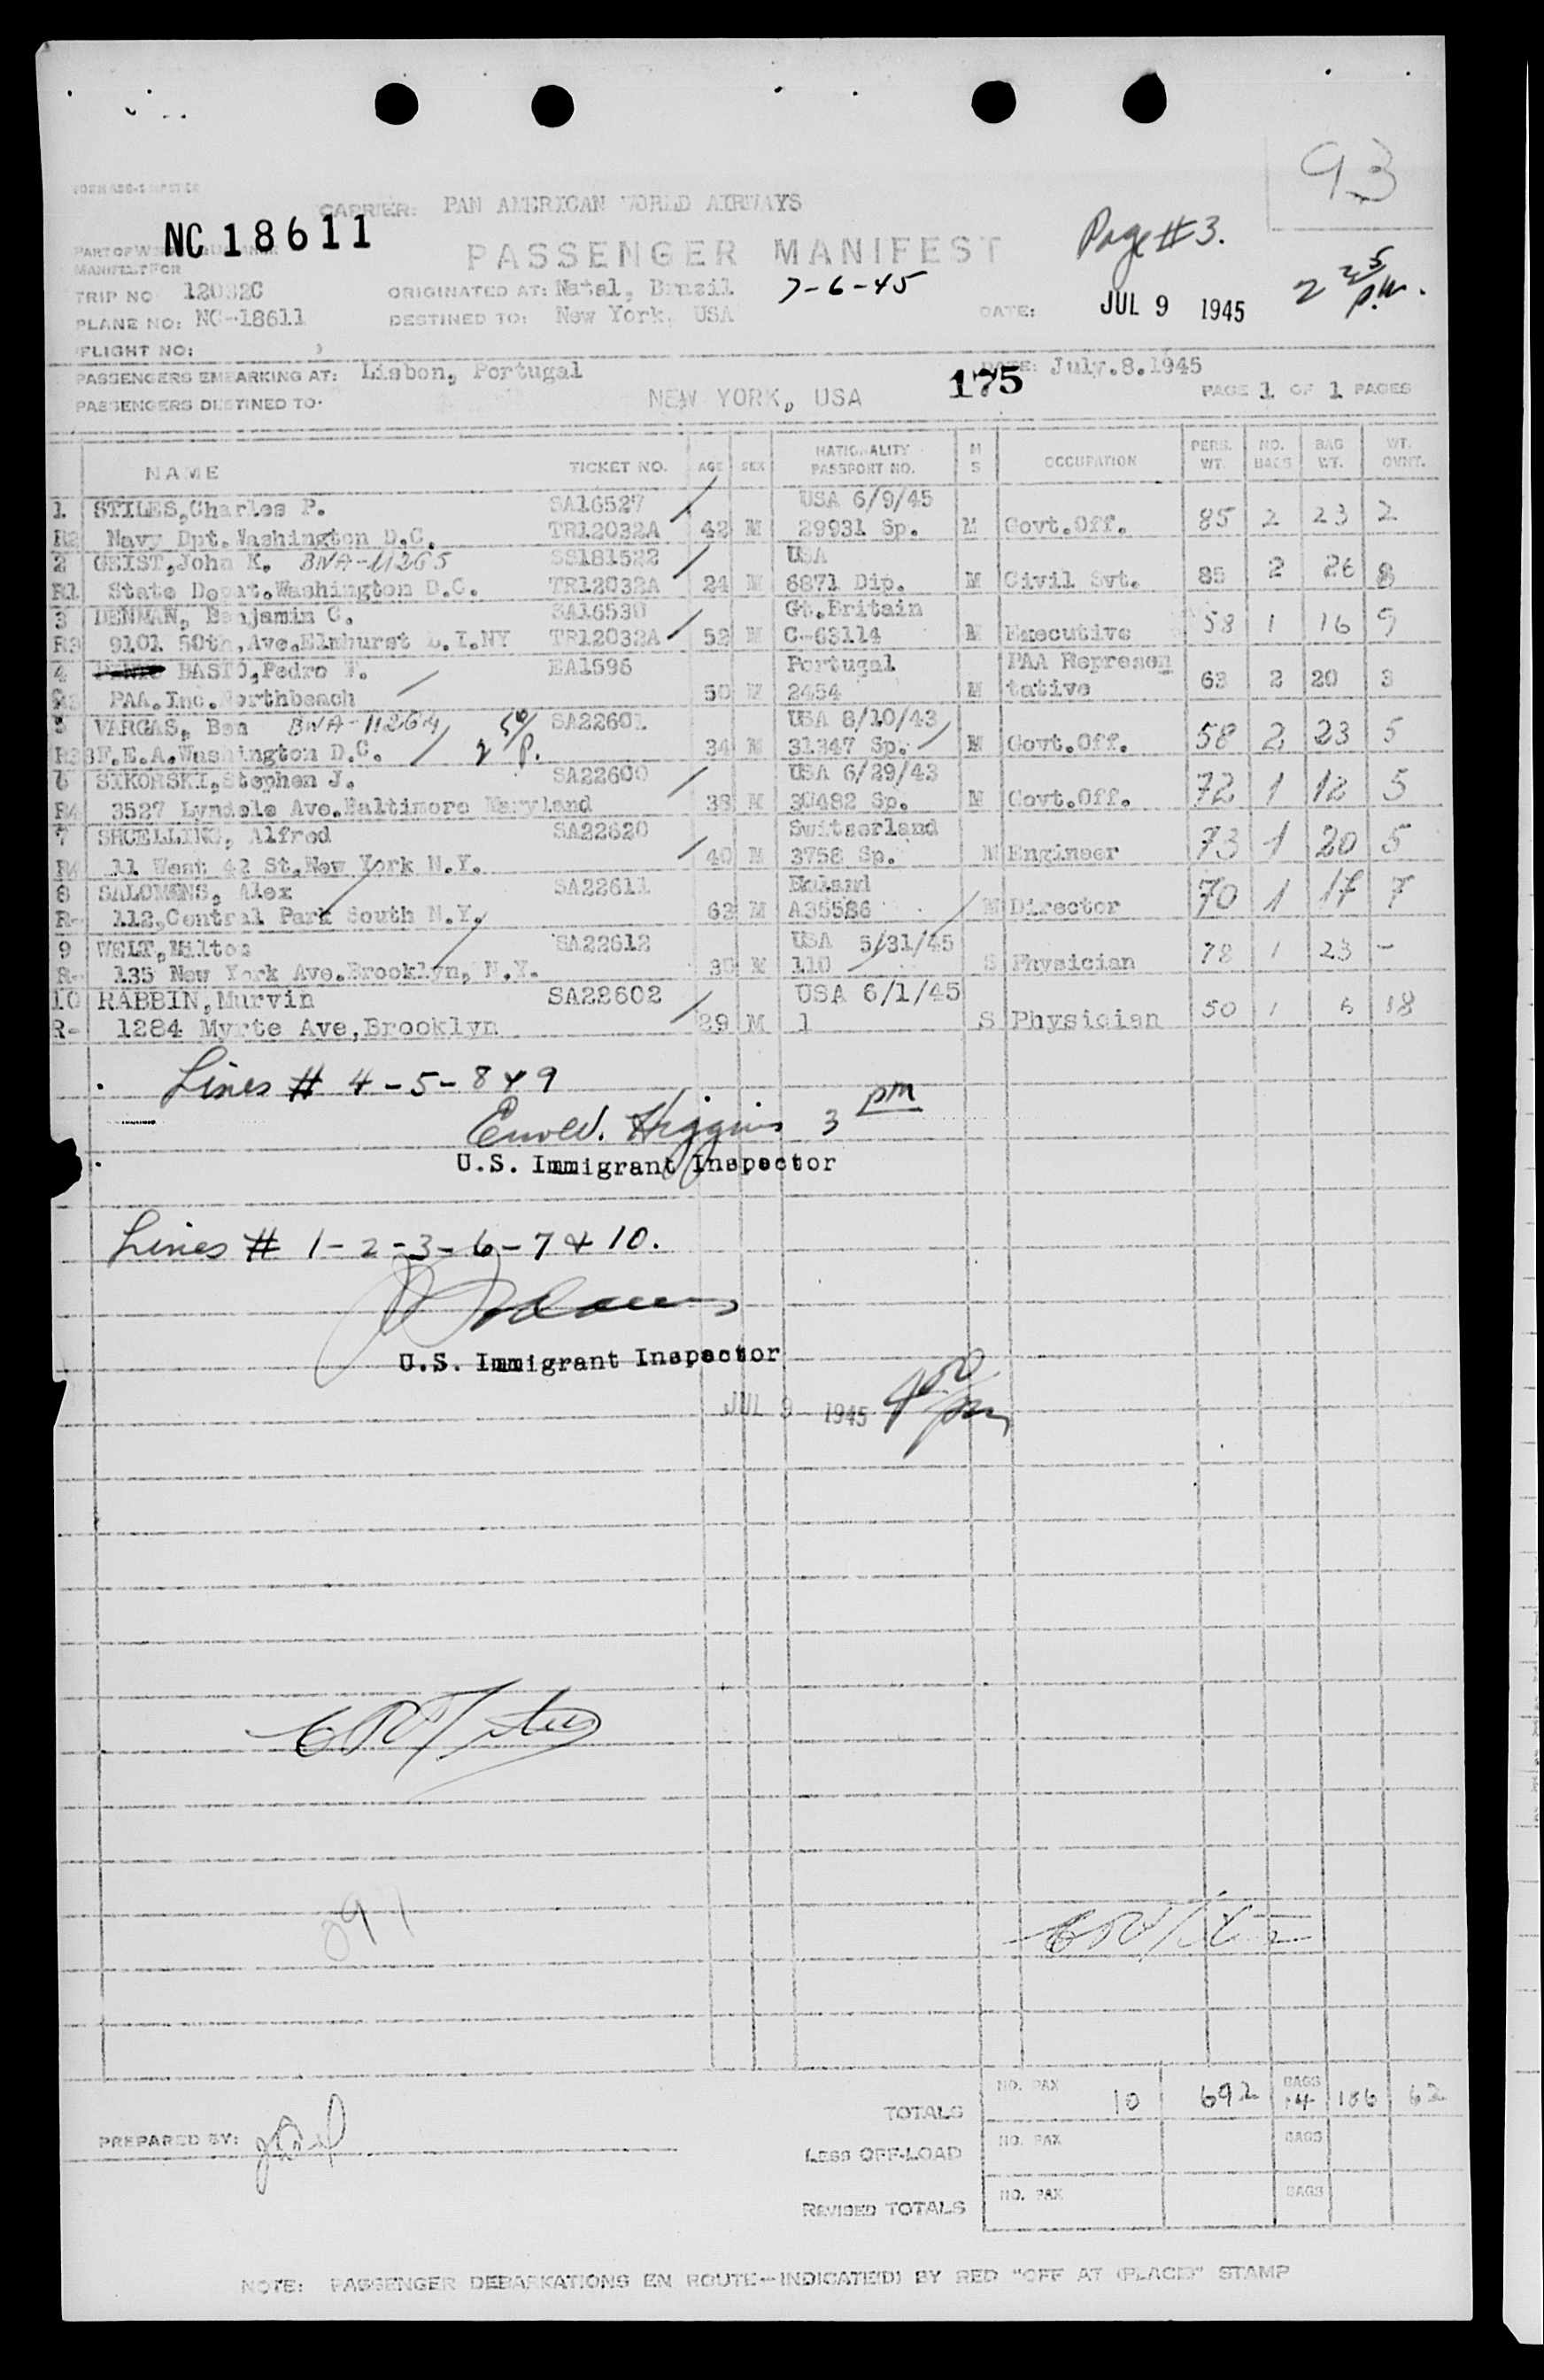 93
CARRIER: PAN AMERICAN WORLD AIRWAYS
NC18611
Page #3.
PASSENGER MANIFEST
PART OF
MANIFEST FOR
TRIP NO 12032C ORIGINATED AT: Natal, Brazil 7-6-45
2 25 p.m.
PLANE NO: NC-18611 DESTINED TO: New York, USA DATE: JUL 9 1945
FLIGHT NO:
PASSENGERS EMBARKING AT: Lisbon, Portugal 175 DATE: July.8.1945
PASSENGERS DESTINED TO. NEW YORK, USA PAGE 1 OF 1 PAGES
NAME TICKET NO. AGE SEX NATIONALITY PASSPORT NO. M S OCCUPATION PERS. WT. NO. BAGS BAG WT. WT. OVNT.
1 STILES,Charles P. SA16527 USA 6/9/45
R2 Navy Dpt.Washington D.C. TR12032A 42 M 29931 Sp. M Govt.Off. 85 2 23 2
2 GEIST,John K. BNA-11265 SS181522 USA
R1 State Depat.Washington D.C. TR12032A 24 M 6871 Dip. M Civil Svt. 85 2 26 8
3 DENMAN, Benjamin C. SA16530 Gt.Britain
R3 9101 50th,Ave.Elmhurst L.I.NY TR12032A 52 M C-63114 M Executive 58 1 16 9
4 BASTO,Pedro W. EA1596 Portugal PAA Represen
PAA.Inc.Northbeach 50 M 2454 M tative 63 2 20 3
5 VARGAS, Ben BNA-11264 2 50/P. SA22601 USA 8/10/43
R3 F.E.A.Washington D.C. 34 M 31347 Sp. M Govt.Off. 58 2 23 5
6 SIKORSKI,Stephen J. SA22600 USA 6/29/43
R4 3527 Lyndale Ave.Baltimore Maryland 38 M 30482 Sp. M Govt.Off. 72 1 12 5
7 SHCELLING, Alfred SA22620 Switserland
R4 11 West 42 St.New York N.Y. 40 M 3758 Sp. M Engineer 73 1 20 5
8 SALOMENS, Alex SA22611
R- 112,Central Park South N.Y. 62 M A35586 M Director 70 1 17 7
9 WELT,Milton SA22612 USA 5/31/45
R- 135 New York Ave.Brooklyn, N.Y. 30 M 110 S Physician 78 1 23 -
10 RABBIN,Murvin SA22602 USA 6/1/45
R- 1284 Myrte Ave,Brooklyn 29 M 1 S Physician 50 1 6 18
Lines # 4-5-8 & 9
Higgins 3 pm
U.S. Immigrant Inspector
Lines # 1-2-3-6-7 & 10.
U.S. Immigrant Inspector
JUL 9 1945 4 00 pm
TOTALS NO. PAX 10 692 BAGS 14 186 62
PREPARED BY:
LESS OFF-LOAD NO. PAX BAGS
REVISED TOTALS NO. PAX BAGS
NOTE: PASSENGER DEBARKATIONS EN ROUTE-INDICATE(D) BY RED "OFF AT (PLACE)" STAMP